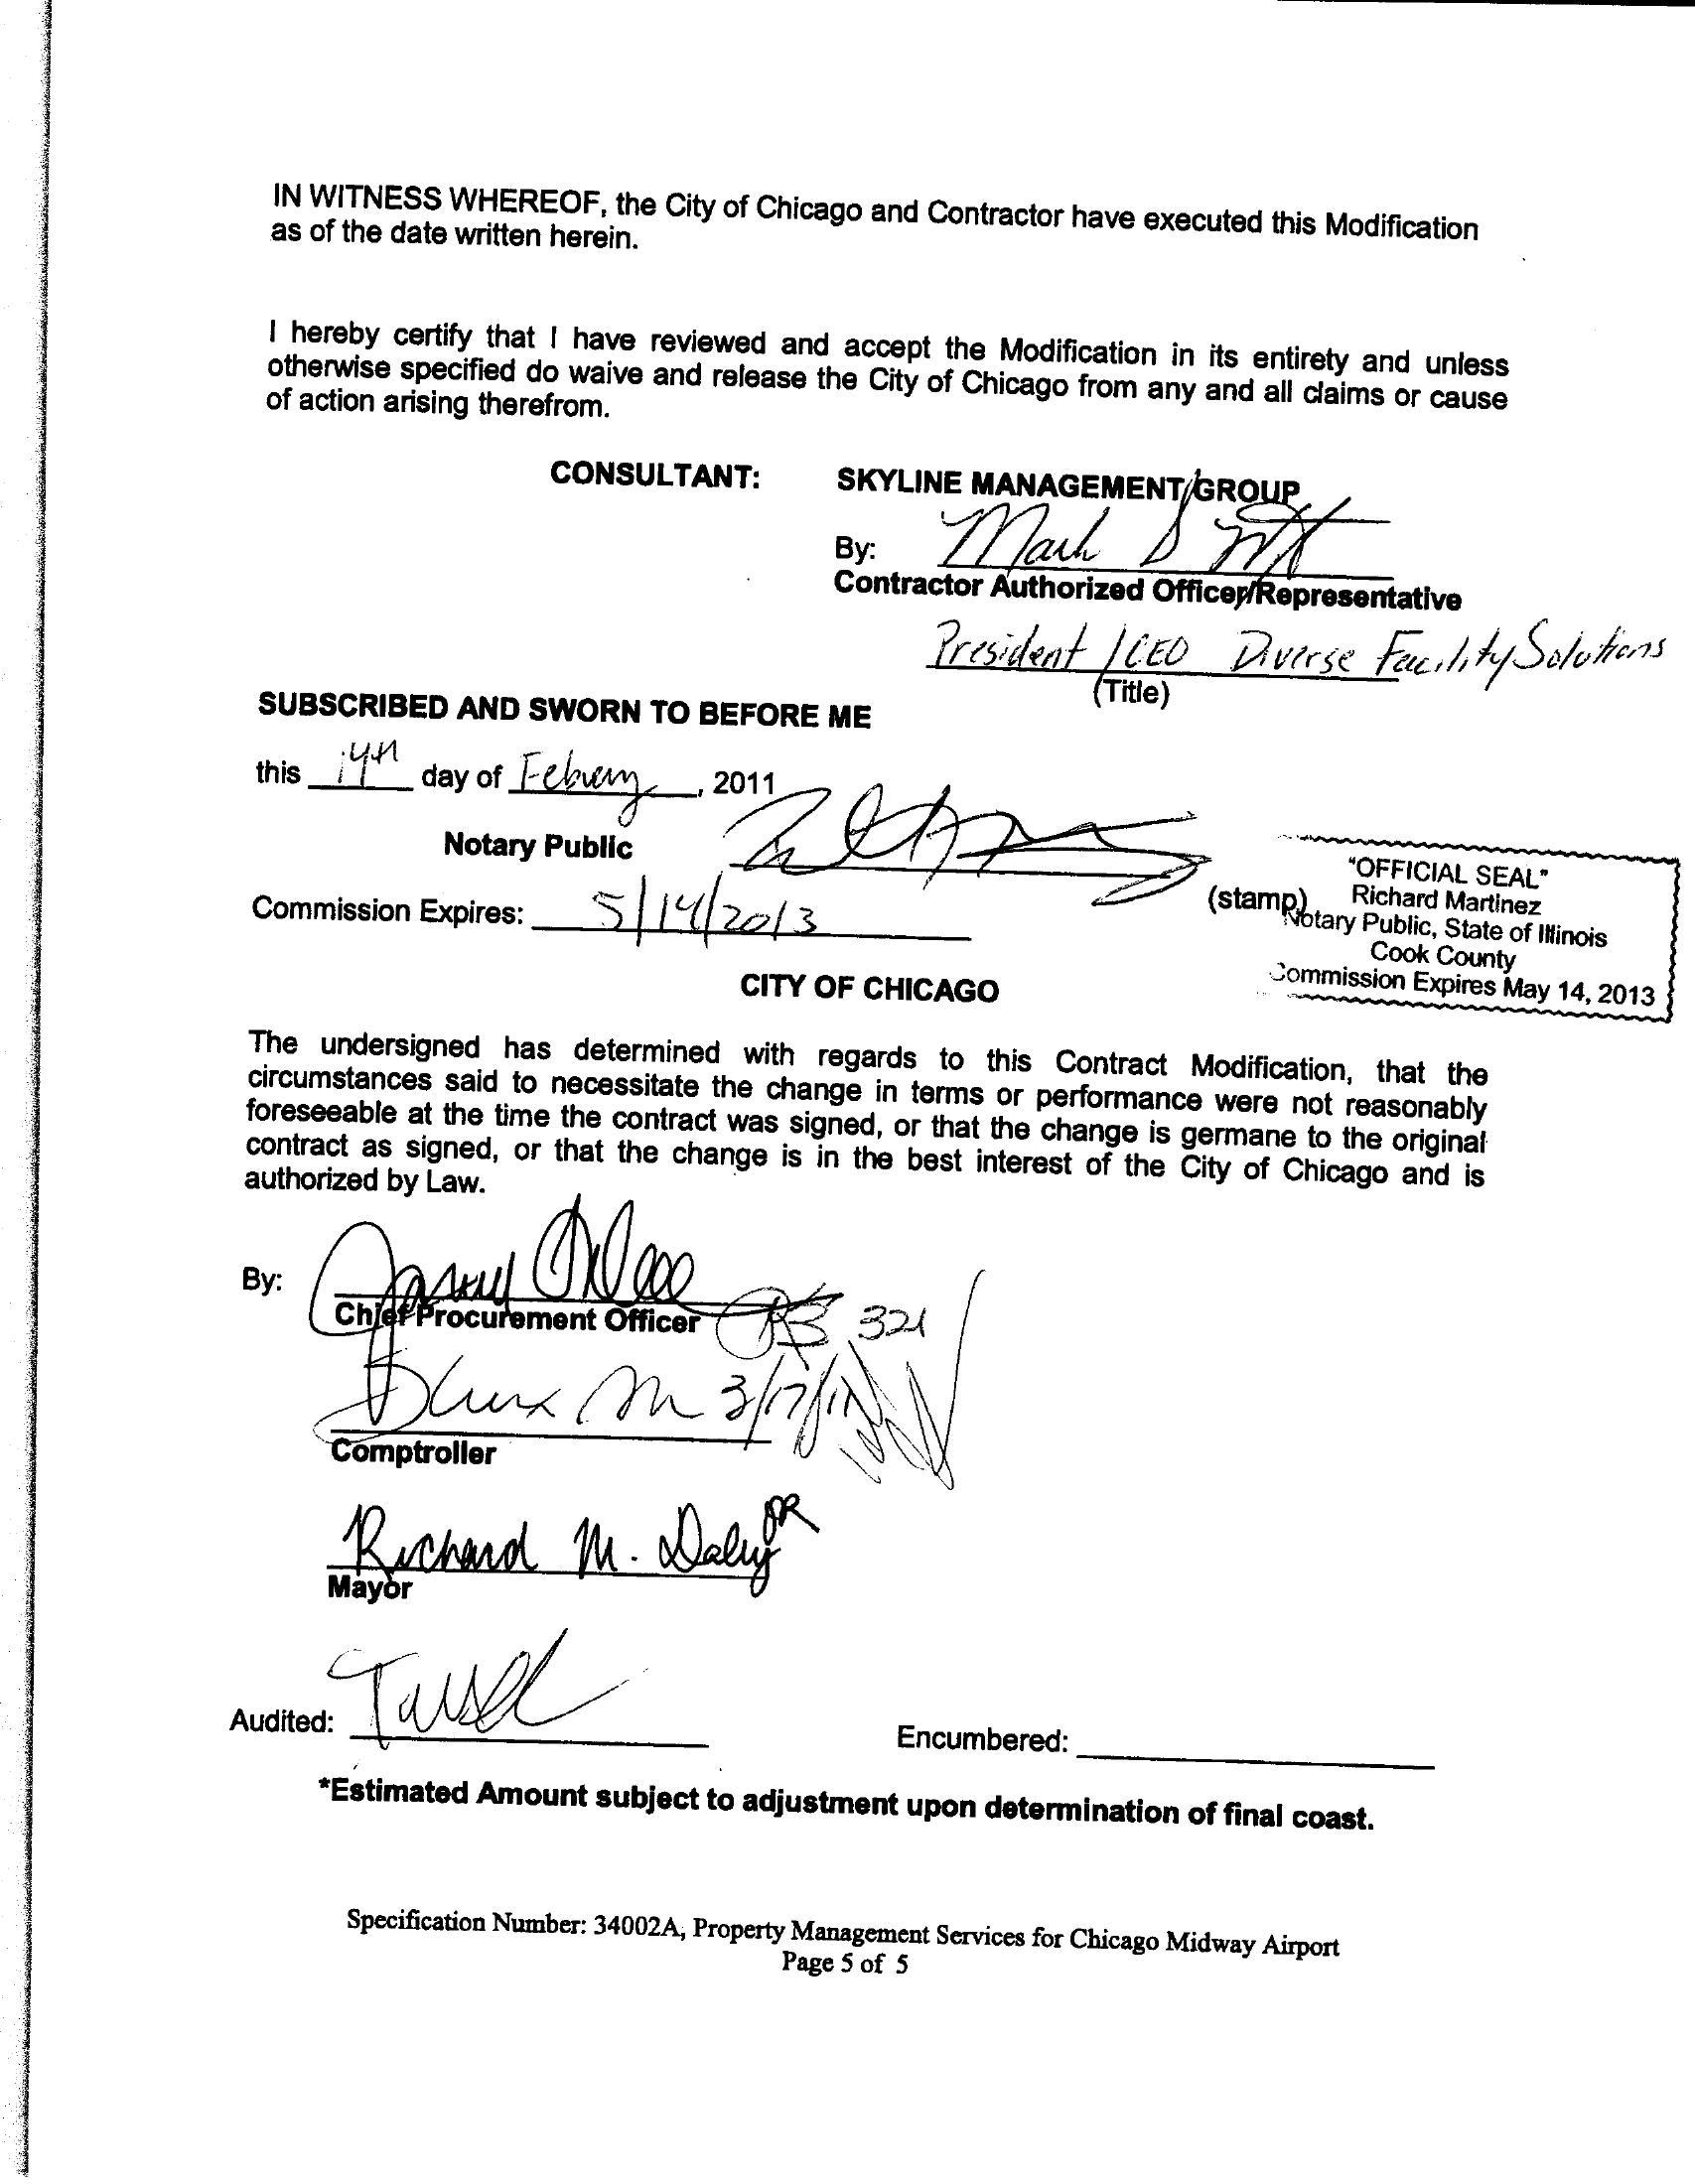 IN WITNESS WHEREOF, the City of Chicago and Contractor have executed this Modification
as of the date written herein.
I hereby certify that I have reviewed and accept the Modification in its entirety and unless
otherwise specified do waive and release the City of Chicago from any and all claims or cause
of action arising therefrom.
CONSULTANT: SKYLINE MANAGEMENT GROUP
By: Mark
Contractor Authorized Officer/Representative
President / CEO Diverse Facility Solutions
(Title)
SUBSCRIBED AND SWORN TO BEFORE ME
this 14th day of February, 2011
Notary Public
Commission Expires: 5/14/2013
(stamp)
"OFFICIAL SEAL"
Richard Martinez
Notary Public, State of Illinois
Cook County
Commission Expires May 14, 2013
CITY OF CHICAGO
The undersigned has determined with regards to this Contract Modification, that the
circumstances said to necessitate the change in terms or performance were not reasonably
foreseeable at the time the contract was signed, or that the change is germane to the original
contract as signed, or that the change is in the best interest of the City of Chicago and is
authorized by Law.
By:
Chief Procurement Officer
3/17/11
Comptroller
Richard M. Daley
Mayor
Audited:
Encumbered:
*Estimated Amount subject to adjustment upon determination of final coast.
Specification Number: 34002A, Property Management Services for Chicago Midway Airport
Page 5 of 5